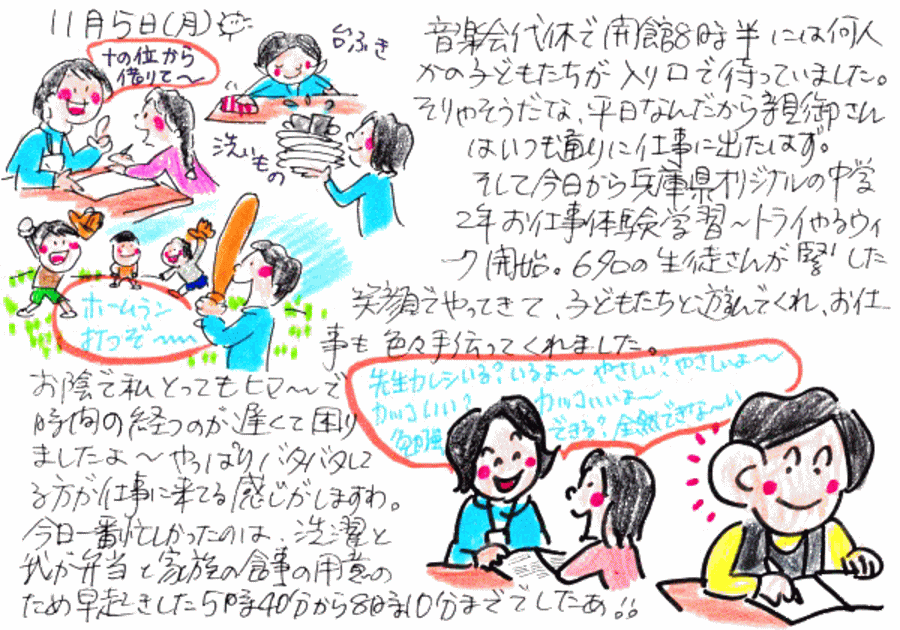 11月5日(月)
十の位から
借りて〜
台ふき
洗いもの
ホームラン
打つぞ〜
音楽会代休で開館8時半には何人
かの子どもたちが入り口で待っていました。
そりゃそうだな、平日なんだから親御さん
はいつも通りに仕事に出たはず。
そして今日から兵庫県オリジナルの中学
2年お仕事体験学習〜トライやるウィ
ーク開始。6名の生徒さんが緊した
笑顔でやってきて、子どもたちと遊んでくれ、お仕
事も色々手伝ってくれました。
お陰で私とってもヒマ〜で
時間の経つのが遅くて困り
ましたよ〜やっぱりバタバタして
る方が仕事に来てる感じがしますわ。
今日一番忙しかったのは、洗濯と
我が弁当と家族の食事の用意の
ため早起きした5時40分から8時10分まででしたぁ!!
先生カレシいる?いるよ〜やさしい?やさしいよ〜
カッコいい?カッコいいよ〜
勉強できる?全然できな〜い